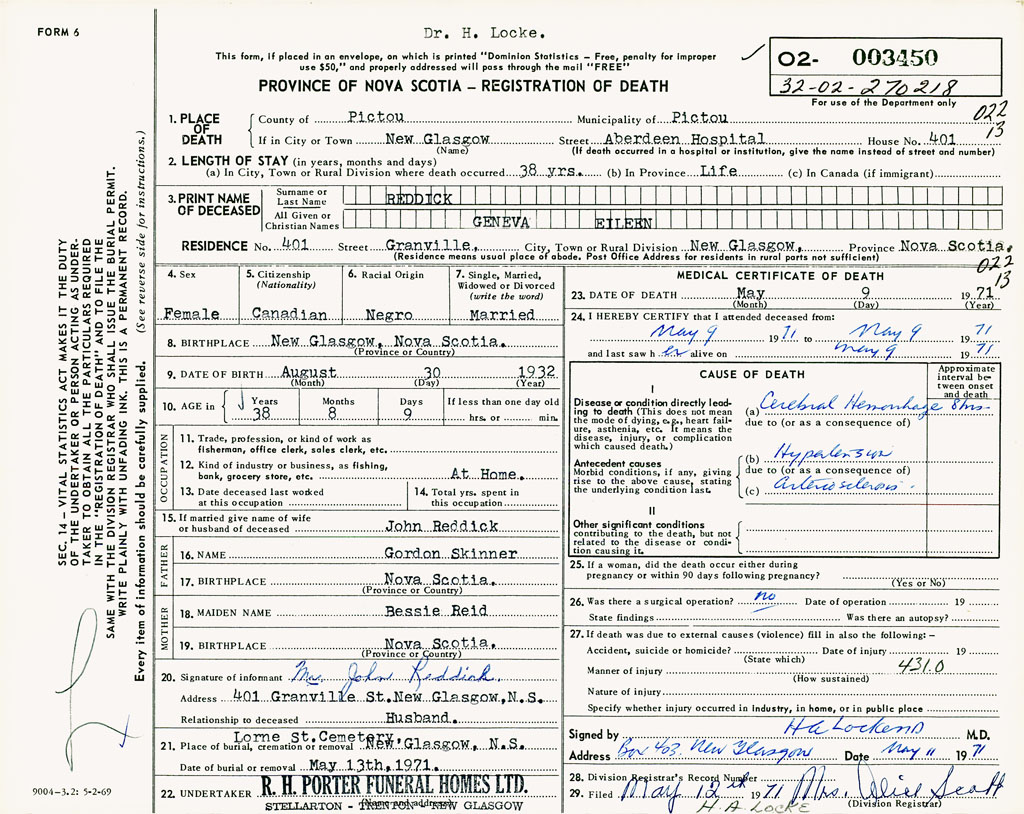 FORM 6
Dr. H. Locke.
This form, if placed in an envelope, on which is printed "Dominion Statistics – Free, penalty for improper
use $50," and properly addressed will pass through the mail "FREE"
PROVINCE OF NOVA SCOTIA – REGISTRATION OF DEATH
02- 003450
32-02-270218
For use of the Department only
022
13
1. PLACE OF DEATH
County of Pictou Municipality of Pictou
If in City or Town New Glasgow Street Aberdeen Hospital House No. 401
(Name) (If death occurred in a hospital or institution, give the name instead of street and number)
2. LENGTH OF STAY (in years, months and days)
(a) In City, Town or Rural Division where death occurred 38 yrs. (b) In Province Life (c) In Canada (if immigrant)
3. PRINT NAME OF DECEASED
Surname or Last Name REDDICK
All Given or Christian Names GENEVA EILEEN
RESIDENCE No. 401 Street Granville, City, Town or Rural Division New Glasgow, Province Nova Scotia.
(Residence means usual place of abode. Post Office Address for residents in rural parts not sufficient)
022
13
4. Sex
Female
5. Citizenship
(Nationality)
Canadian
6. Racial Origin
Negro
7. Single, Married,
Widowed or Divorced
(write the word)
Married
8. BIRTHPLACE New Glasgow, Nova Scotia.
(Province or Country)
9. DATE OF BIRTH August 30 1932
(Month) (Day) (Year)
10. AGE in Years Months Days If less than one day old
38 8 9 hrs. or min.
OCCUPATION
11. Trade, profession, or kind of work as
fisherman, office clerk, sales clerk, etc.
12. Kind of industry or business, as fishing,
bank, grocery store, etc. At Home.
13. Date deceased last worked
at this occupation
14. Total yrs. spent in
this occupation
15. If married give name of wife
or husband of deceased John Reddick
FATHER
16. NAME Gordon Skinner
17. BIRTHPLACE Nova Scotia.
(Province or Country)
MOTHER
18. MAIDEN NAME Bessie Reid
19. BIRTHPLACE Nova Scotia.
(Province or Country)
20. Signature of informant Mrs. John Reddick
Address 401 Granville St.New Glasgow,N.S.
Relationship to deceased Husband.
Lorne St.Cemetery,
21. Place of burial, cremation or removal New Glasgow, N.S.
Date of burial or removal May 13th,1971.
22. UNDERTAKER R. H. PORTER FUNERAL HOMES LTD.
(Name and address)
STELLARTON - TRENTON - NEW GLASGOW
MEDICAL CERTIFICATE OF DEATH
23. DATE OF DEATH May 9 1971
(Month) (Day) (Year)
24. I HEREBY CERTIFY that I attended deceased from:
May 9 1971 to May 9 71
and last saw h er alive on May 9 1971
CAUSE OF DEATH
Approximate
interval be-
tween onset
and death
I
Disease or condition directly lead-
ing to death (This does not mean
the mode of dying, e.g., heart fail-
ure, asthenia, etc. It means the
disease, injury, or complication
which caused death.)
(a) Cerebral Hemorrhage 8 hrs
due to (or as a consequence of)
Antecedent causes
Morbid conditions, if any, giving
rise to the above cause, stating
the underlying condition last.
(b) Hypertension
due to (or as a consequence of)
(c) Arteriosclerosis.
II
Other significant conditions
contributing to the death, but not
related to the disease or condi-
tion causing it.
25. If a woman, did the death occur either during
pregnancy or within 90 days following pregnancy?
(Yes or No)
26. Was there a surgical operation? no Date of operation 19
State findings Was there an autopsy?
27. If death was due to external causes (violence) fill in also the following: –
Accident, suicide or homicide? Date of injury 19
(State which)
Manner of injury 431.0
(How sustained)
Nature of injury
Specify whether injury occurred in industry, in home, or in public place
Signed by H A Locke MD M.D.
Address Box 403 New Glasgow Date May 11 1971
28. Division Registrar's Record Number
29. Filed May 12th 1971 Mrs. Alice Scott
(Division Registrar)
H. A LOCKE
SEC. 14 – VITAL STATISTICS ACT MAKES IT THE DUTY
OF THE UNDERTAKER OR PERSON ACTING AS UNDER-
TAKER TO OBTAIN ALL THE PARTICULARS REQUIRED
IN THE "REGISTRATION OF DEATH" AND TO FILE THE
SAME WITH THE DIVISION REGISTRAR WHO SHALL ISSUE THE BURIAL PERMIT.
WRITE PLAINLY WITH UNFADING INK. THIS IS A PERMANENT RECORD.
Every item of information should be carefully supplied. (See reverse side for instructions.)
9004-3.2: 5-2-69